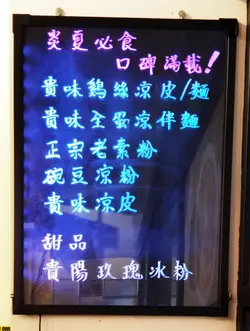 炎夏必食
口碑滿載!
貴味鷄絲凉皮/麵
貴味全蛋凉伴麵
正宗老素粉
碗豆凉粉
貴味凉皮
甜品
貴陽玫瑰冰粉